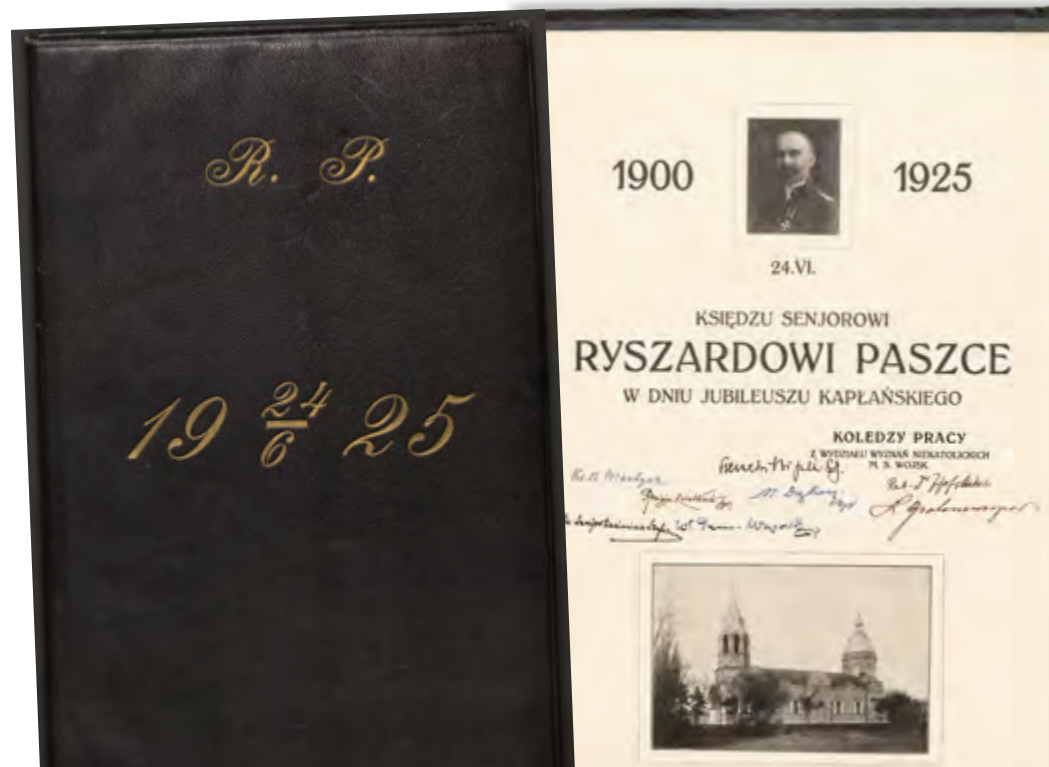 R. P.
19 24/6 25
1900 1925
24.VI.
KSIĘDZU SENJOROWI
RYSZARDOWI PASZCE
W DNIU JUBILEUSZU KAPŁAŃSKIEGO
KOLEDZY PRACY
Z WYDZIAŁU WYZNAŃ NIEKATOLICKICH
M. S. WOJSK.